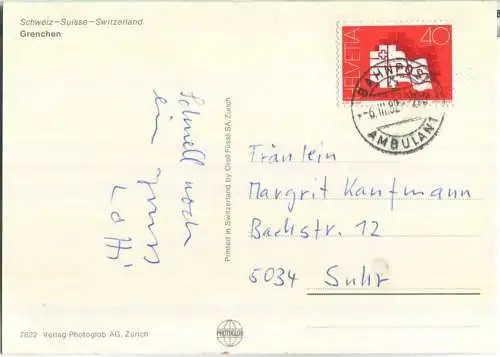 Schweiz-Suisse-Switzerland
Grenchen
Schnell noch
ein Gruss
Lotti
Printed in Switzerland by Orell Füssli SA, Zurich
HELVETIA 40
BAHNPOST
AMBULANT
Fräulein
Margrit Kaufmann
Bachstr. 12
5034 Suhr
PHOTOGLOB
7822 Verlag Photoglob AG, Zürich